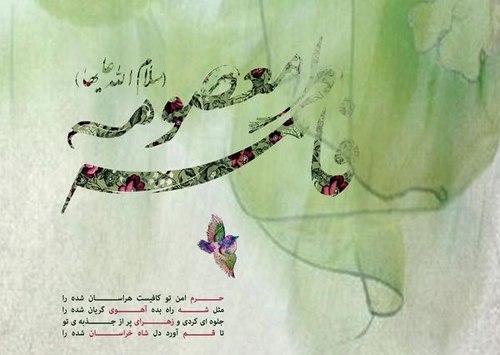 فاطمه معصومه
(سلام الله علیها)
حرم امن تو کافیست هراسان شده را
مثل شه راه بده آهوی گریان شده را
جلوه ای کردی و زهرای پر از جذبه ی تو
تا قم آورد دل شاه خراسان شده را